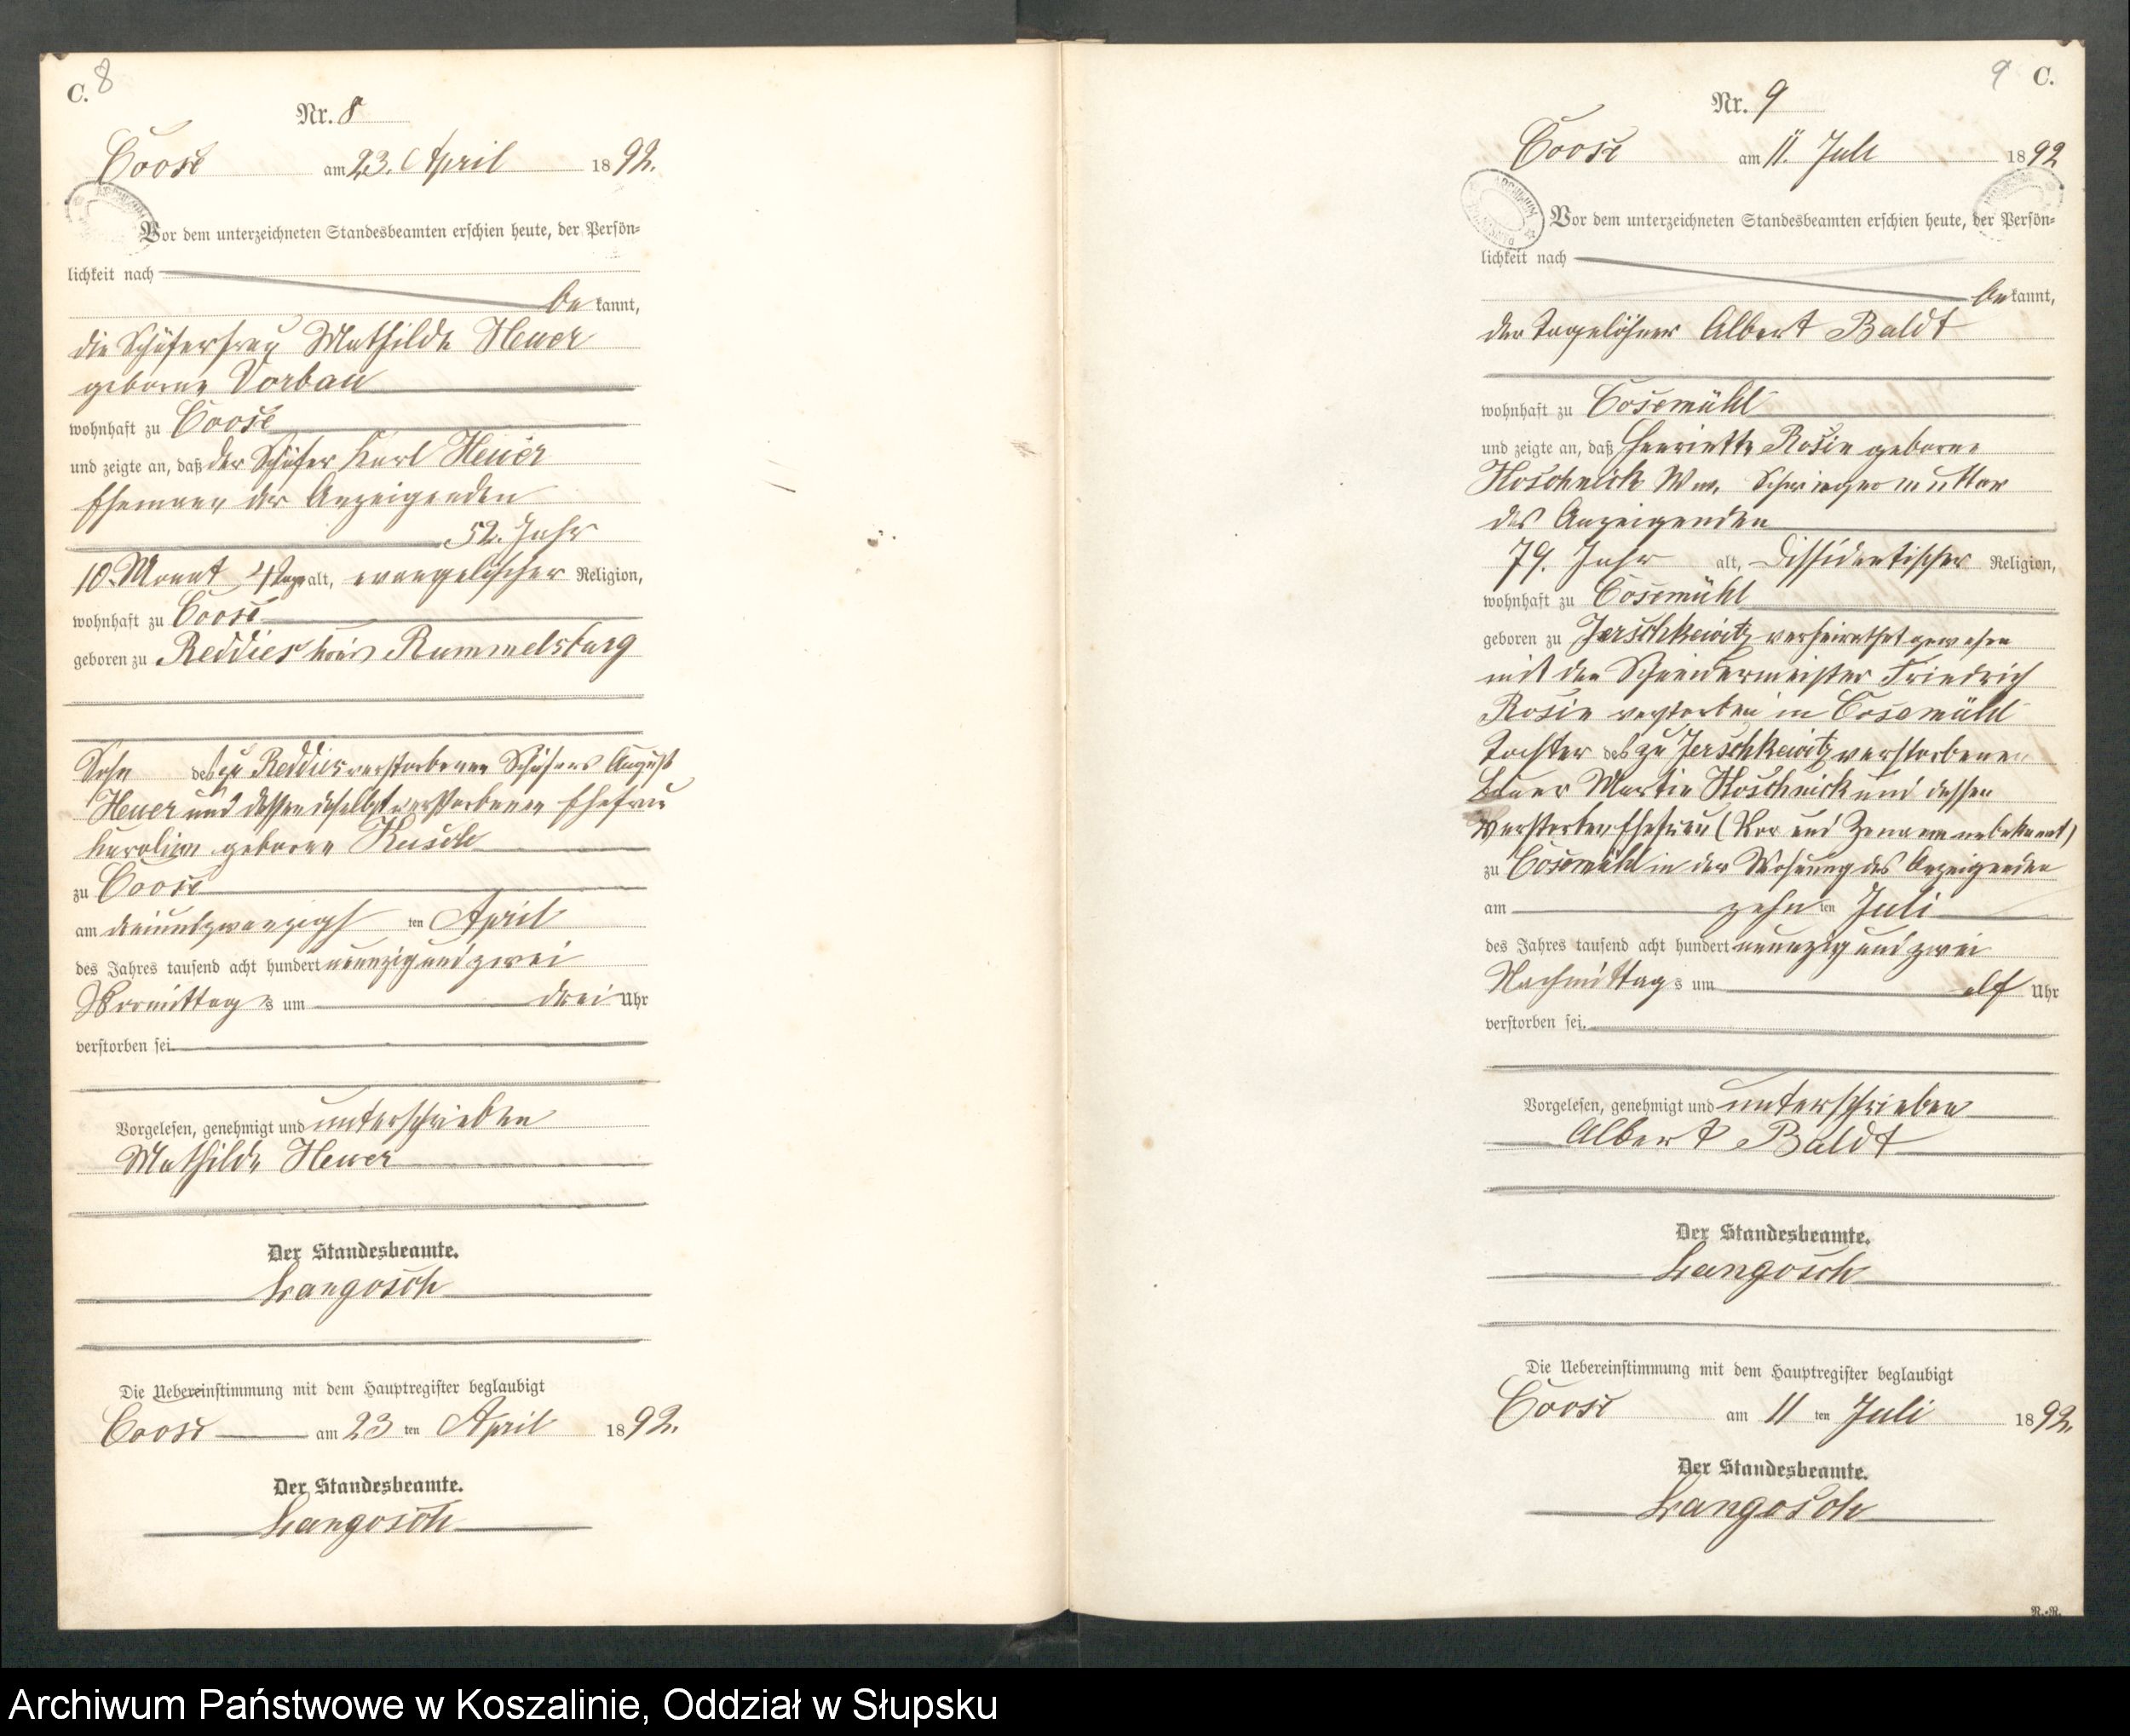 C. 8
Nr. 8
Coose am 23. April 1892.
Vor dem unterzeichneten Standesbeamten erschien heute, der Persön-
lichkeit nach
bekannt,
die Schäferfrau Mathilde Heuer
geborne Vorbau
wohnhaft zu Coose
und zeigte an, daß der Schäfer Karl Heuer
Ehemann der Anzeigenden
52. Jahr
10. Monat 4 Tage alt, evangelischer Religion,
wohnhaft zu Coose
geboren zu Reddies Kreis Rummelsburg
Sohn des zu Reddies verstorbenen Schäfers August
Heuer und dessen daselbst verstorbenen Ehefrau
Karoline geborne Kusch
zu Coose
am dreiundzwanzigsten April
des Jahres tausend acht hundert neunzig und zwei
Vormittags um drei Uhr
verstorben sei.
Vorgelesen, genehmigt und unterschrieben
Mathilde Heuer
Der Standesbeamte.
Langosch
Die Uebereinstimmung mit dem Hauptregister beglaubigt
Coose am 23 ten April 1892.
Der Standesbeamte.
Langosch
9 C.
Nr. 9
Coose am 11. Juli 1892
ARCHIWUM
Vor dem unterzeichneten Standesbeamten erschien heute, der Persön-
lichkeit nach
bekannt,
der Tagelöhner Albert Baldt
wohnhaft zu Cosemühl
und zeigte an, daß Henriette Rosin geborne
Koschnick Ww. Schwiegermutter
des Anzeigenden
79. Jahr alt, Dissidentischer Religion,
wohnhaft zu Cosemühl
geboren zu Jerschkewitz verheirathet gewesen
mit den Schneidermeister Friedrich
Rosin verstorben in Cosemühl
Tochter des zu Jerschkewitz verstorbenen
Bauer Martin Koschnick und dessen
verstorben Ehefrau (Vor und Zuname unbekannt)
zu Cosemühl in der Wohnung des Anzeigenden
am zehn ten Juli
des Jahres tausend acht hundert neunzig und zwei
Nachmittags um elf Uhr
verstorben sei.
Vorgelesen, genehmigt und unterschrieben
Albert Baldt
Der Standesbeamte.
Langosch
Die Uebereinstimmung mit dem Hauptregister beglaubigt
Coose am 11 ten Juli 1892.
Der Standesbeamte.
Langosch
R.-R.
Archiwum Państwowe w Koszalinie, Oddział w Słupsku